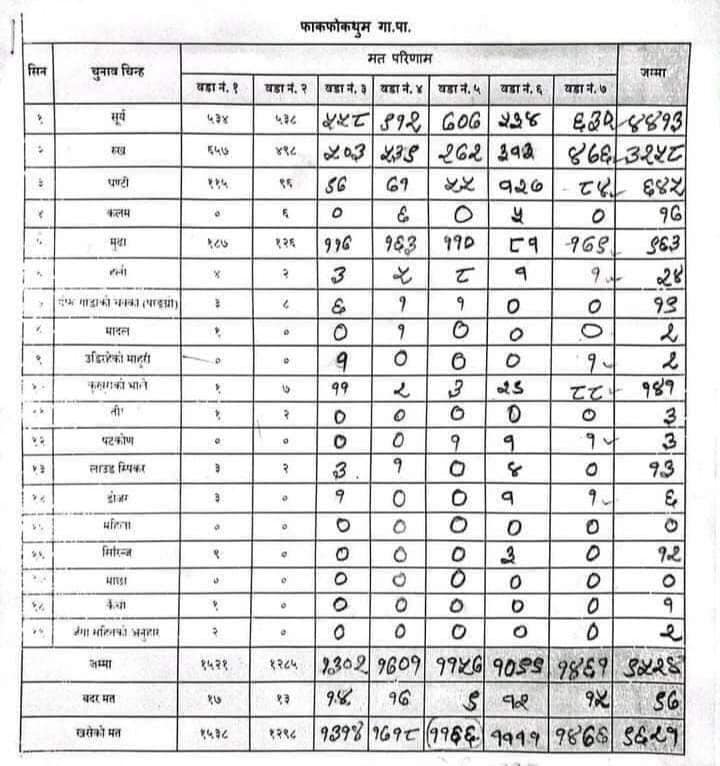 फाकफोकथुम गा.पा.
सिन चुनाव चिन्ह मत परिणाम जम्मा
वडा नं. १ वडा नं. २ वडा नं. ३ वडा नं. ४ वडा नं. ५ वडा नं. ६ वडा नं. ७
१ सूर्य ५३४ ५३८ ५५८ ९१२ ७०७ ५३४ ६३२ ४४१३
२ रुख ६५७ ४९८ ५०३ ५३९ २७२ ३२३ ४६६ ३२५८
३ घण्टी ११५ ९६ ९७ ७१ ५५ १२७ ८४ ६४५
४ कलम ० ६ ० ६ ० ५ ० १७
मुढा १८७ १२६ ११७ १६३ ११० ८१ १६९ ९६३
हलो ४ २ ३ ५ ८ १ १ २४
गाडाको चक्का (पाङग्रो) ३ ८ ६ १ १ ० ० १९
मादल १ ० ० १ ० ० ० २
९ उडिरहेको माहुरी ० ० १ ० ० ० १ २
भाले १ ७ ११ २ ३ २९ ८८ १४१
तीर १ २ ० ० ० ० ० ३
१२ षटकोण ० ० ० ० १ १ १ ३
१३ लाउड स्पिकर ३ २ ३ १ ० ४ ० १३
१४ डोजर ३ ० १ ० ० १ १ ६
महिला ० ० ० ० ० ० ० ०
सिरिन्ज ९ ० ० ० ० ३ ० १२
माछा ० ० ० ० ० ० ० ०
१८ कैंची १ ० ० ० ० ० ० १
अनुहार २ ० ० ० ० ० ० २
जम्मा १५२१ १२८५ १३०२ १७०१ ११५७ १०९९ १४६१ ९५२६
बदर मत १७ १३ १४ १७ ९ १२ १५ ९७
खसेको मत १५३८ १२९८ १३१६ १७१८ ११६६ ११११ १४७६ ९६२३